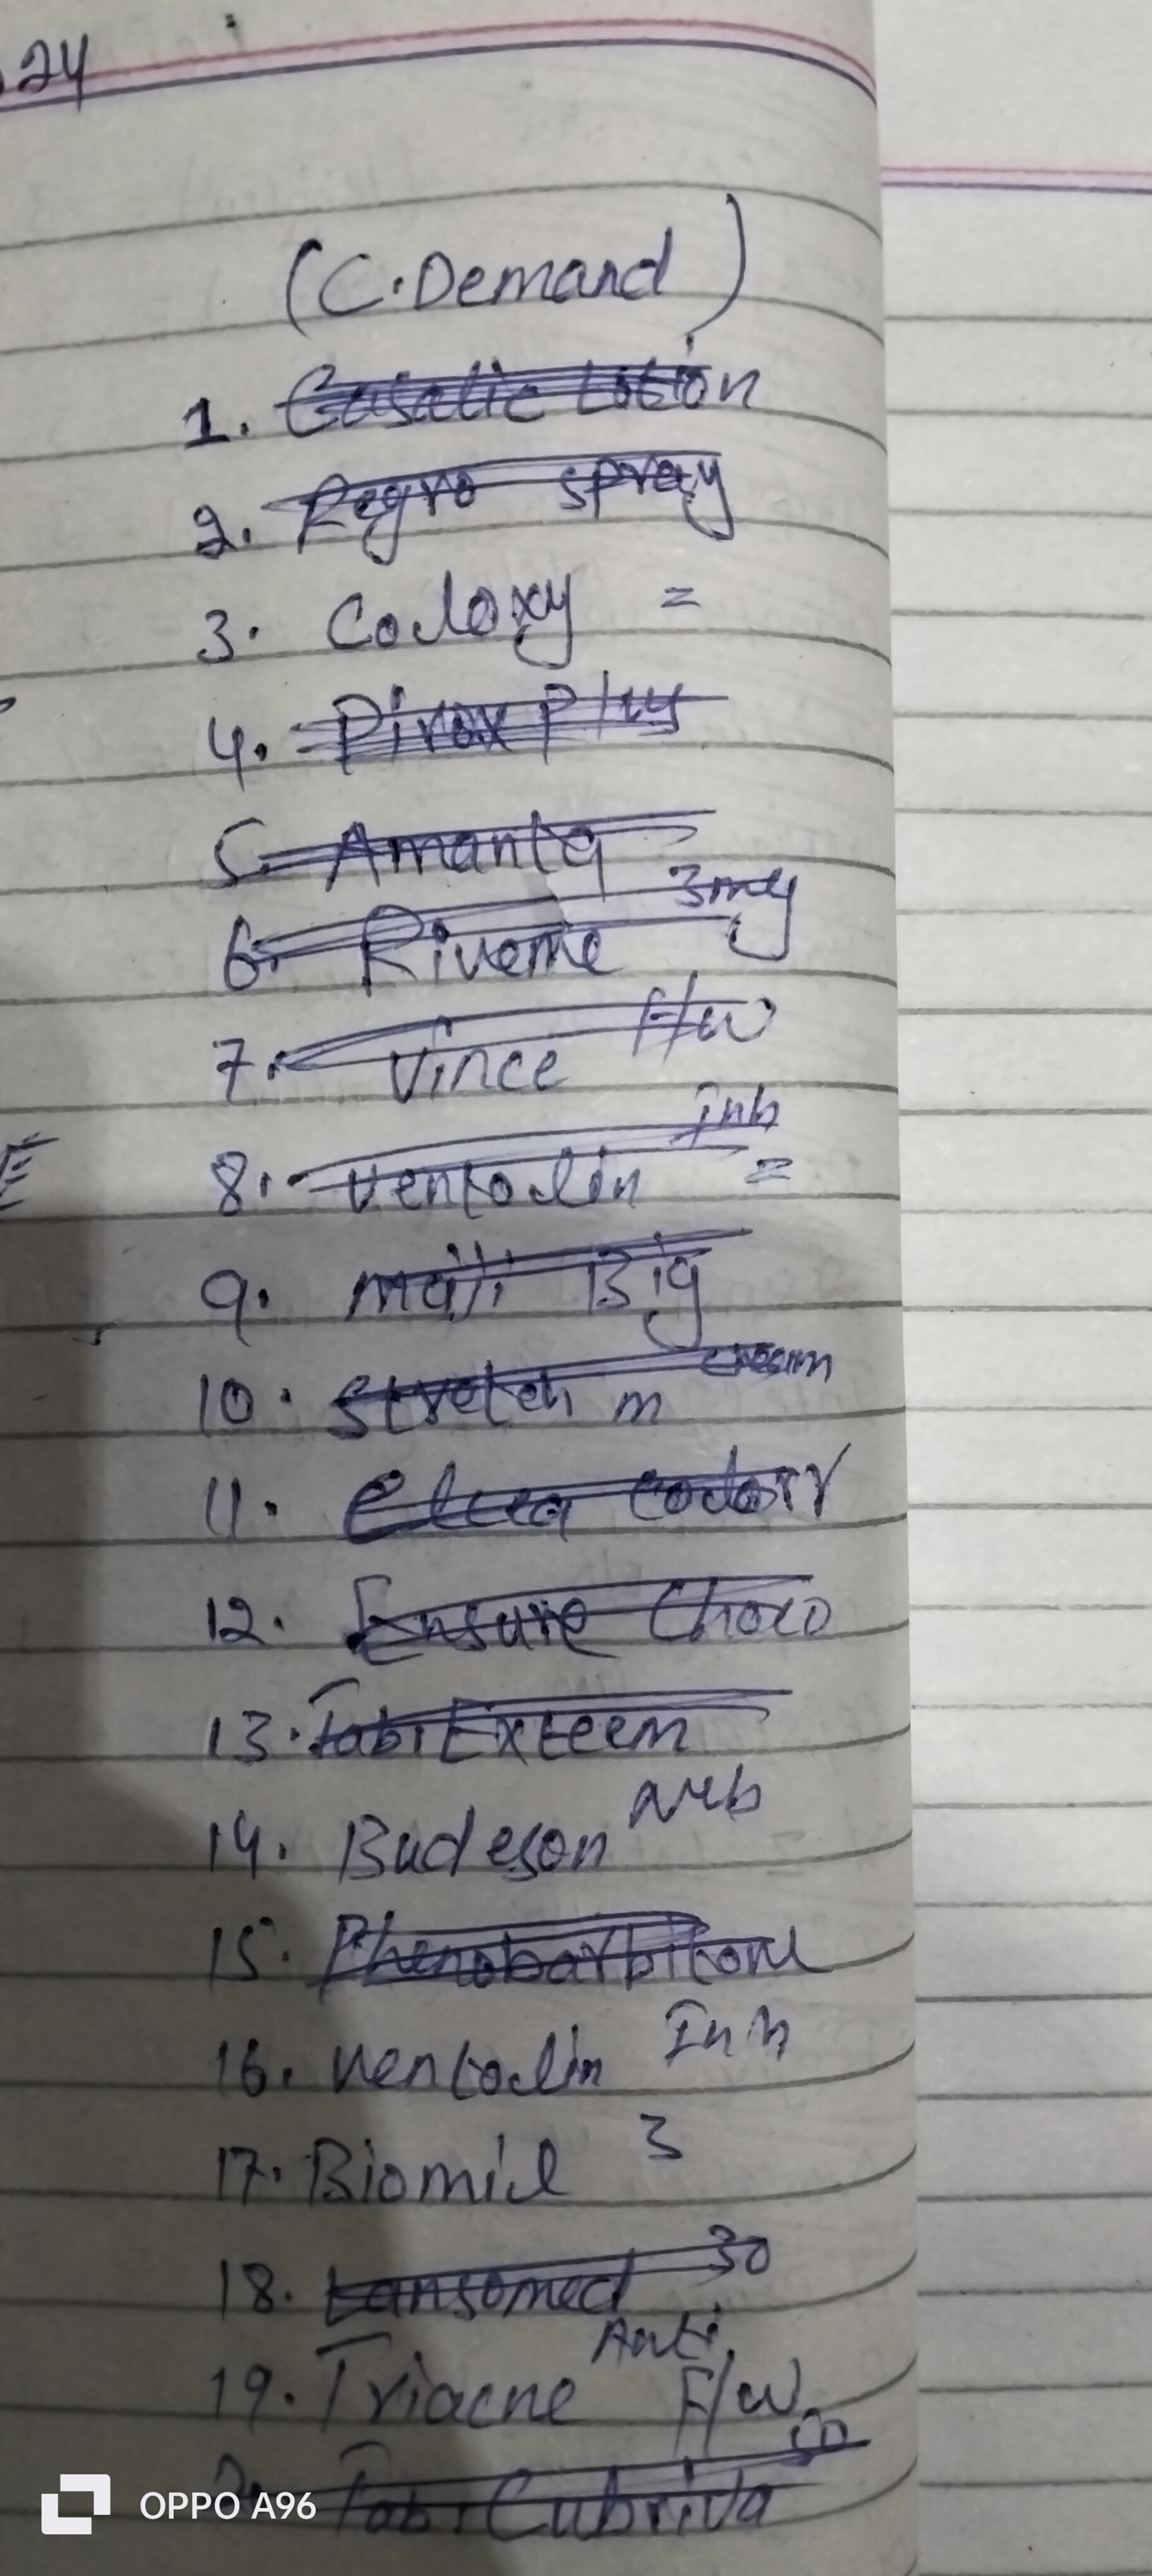 24
(C. Demand)
1. Casalic Lotion
2. Regro spray
3. Codoxy =
4. Pirox Plus
5. Amanta
6. Riveme 3mg
7. Vince F/w
8. ventolin Inh =
9. Big
10. Stretch m cream
11.
12. Ensure Choco
13. Tab. Exteem
14. Budeson Neb
15. Phenobarbitone
16. ventolin Inh
17. Biomil 3
18. Lansomed 30
19. Triacne Anti F/w
20. Tab. Cubriva
OPPO A96